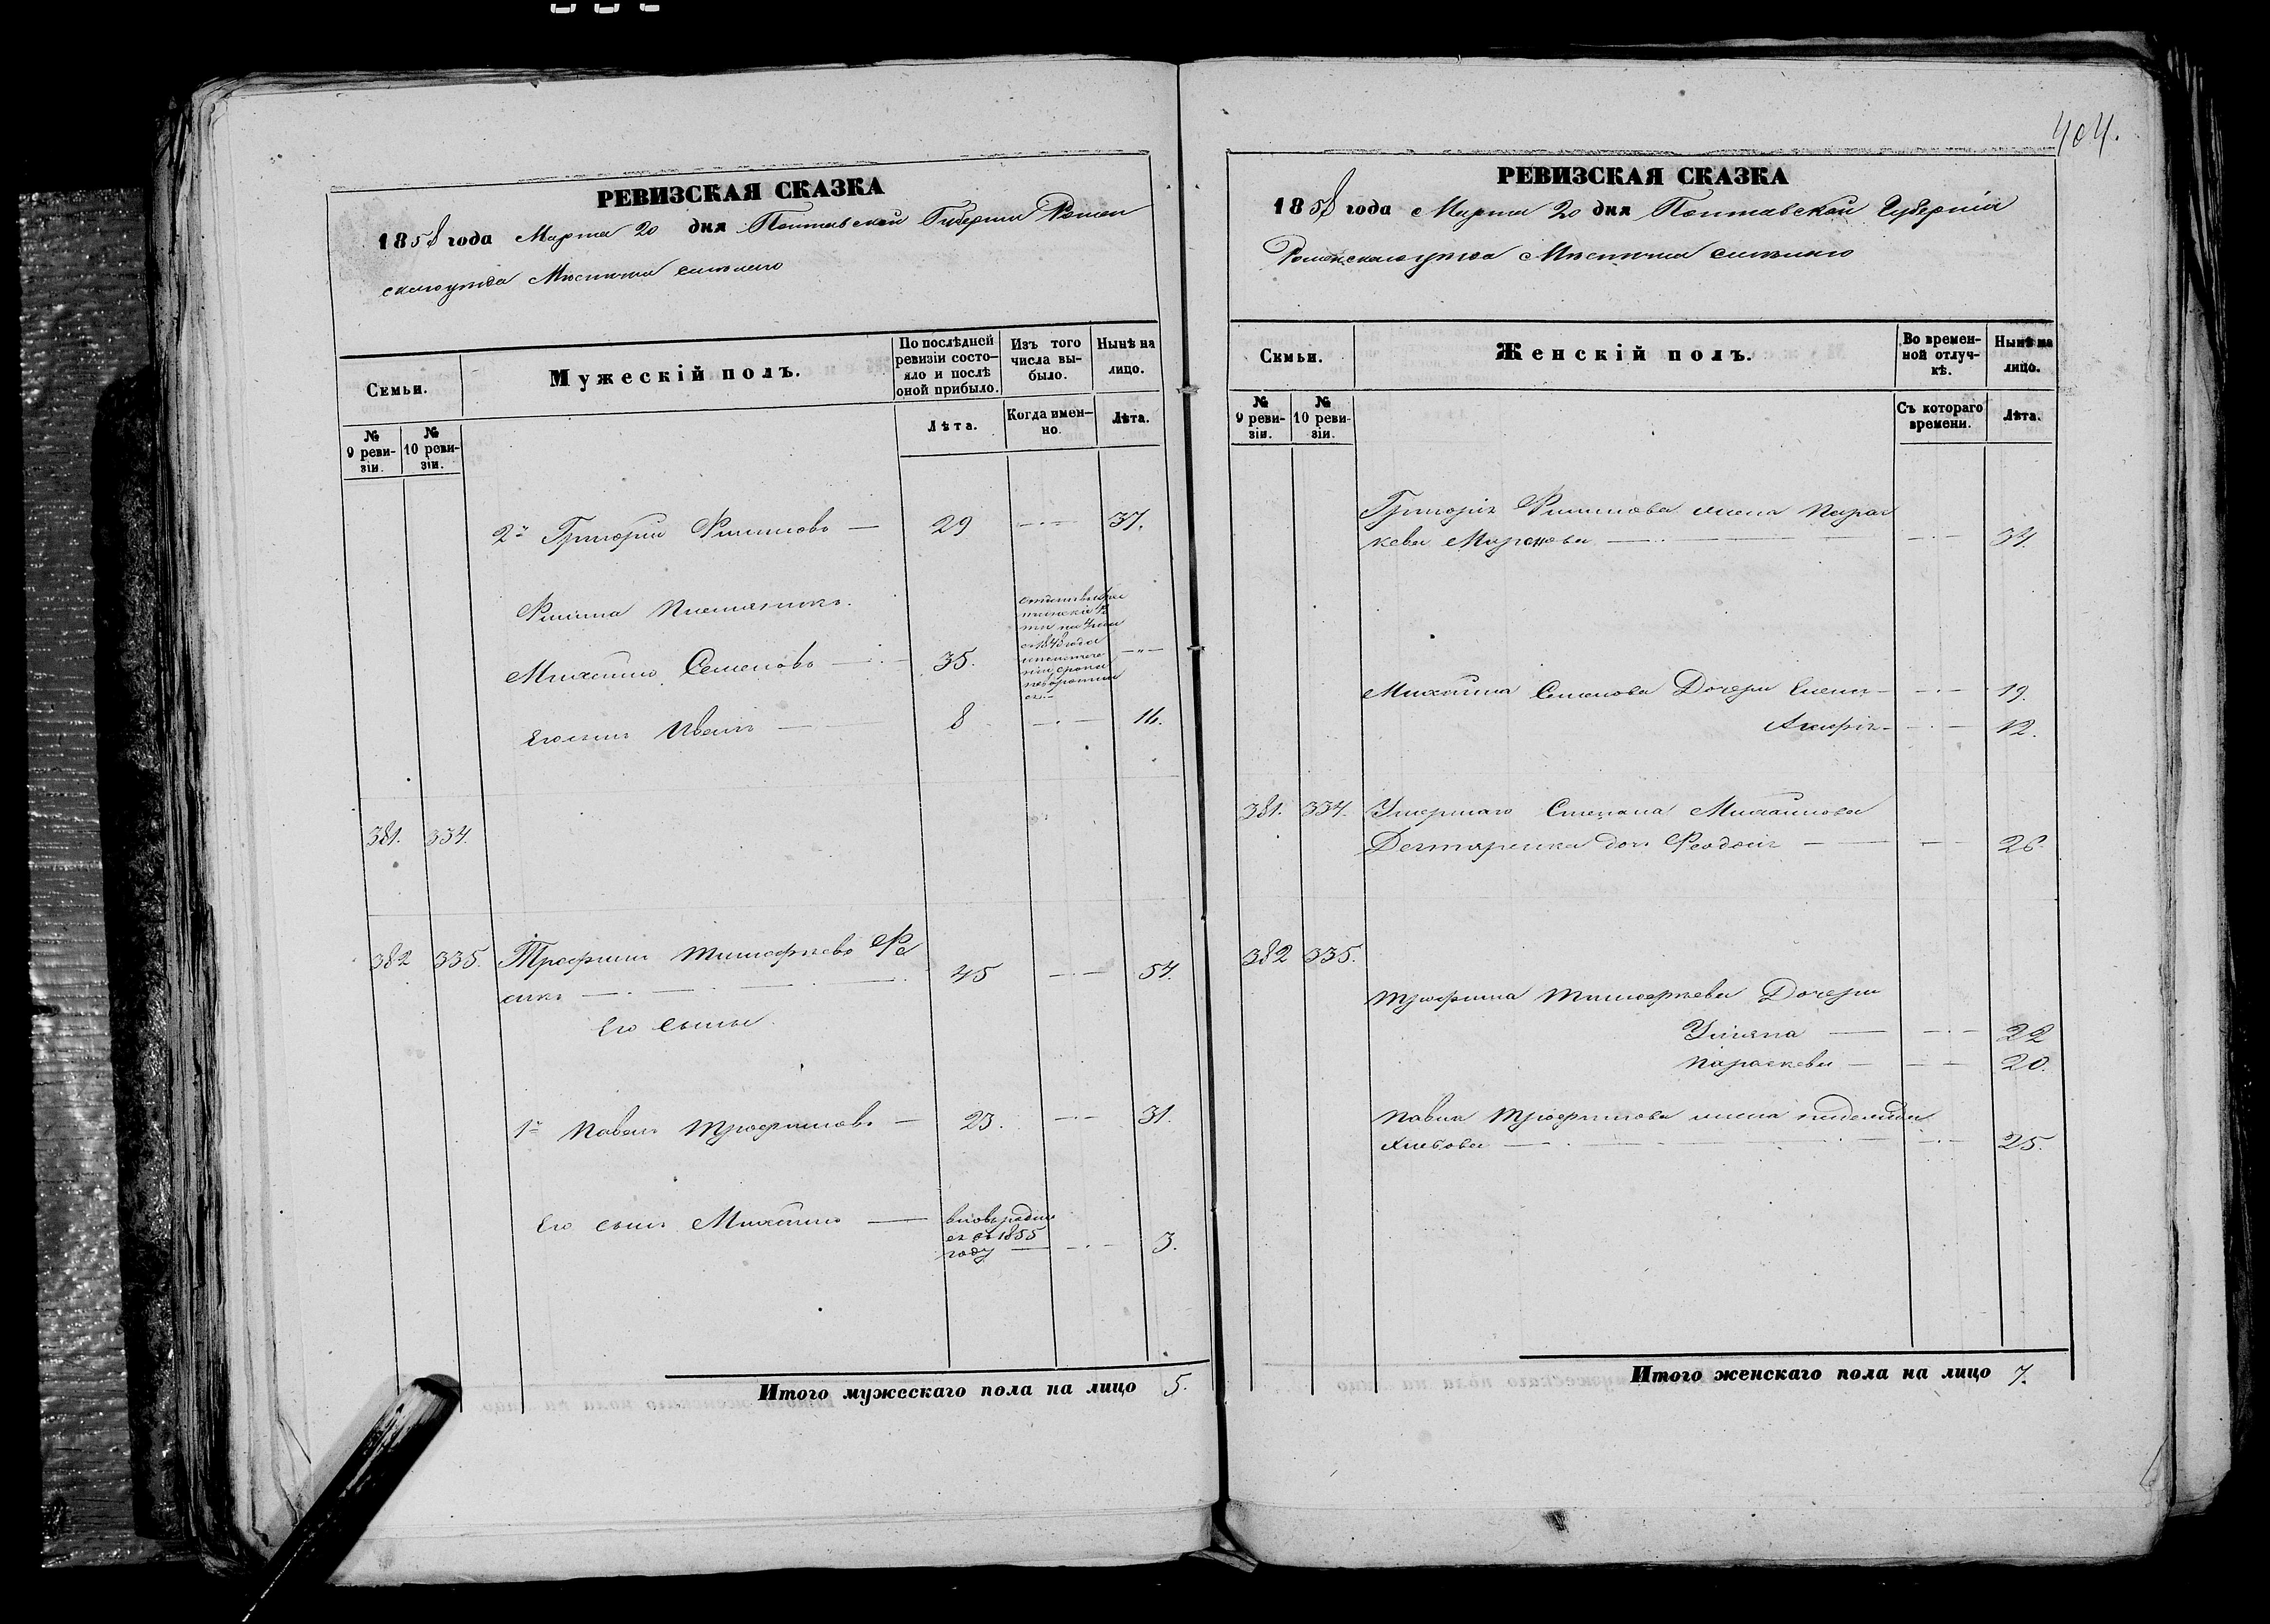 404.
РЕВИЗСКАЯ СКАЗКА
1858 года Марта 20 дня Полтавской Губерніи Ромен
скаго уезда Местечка
Семьи.
Мужескій полъ.
По послѣдней ревизіи состояло и послѣ оной прибыло.
Изъ того числа выбыло.
Нынѣ на лицо.
№ 9 ревизіи.
№ 10 ревизіи.
Лѣта.
Когда именно.
Лѣта.
2й Григорій Филиповъ — 29 — 37.
Филипа племяникъ.
Михаилъ Семеновъ — 35.
1848 года
Его сынъ Иванъ — 8 — 16.
381. 334.
382 335. Трофимъ Тимофеевъ
45 — 54.
Его сыны
1й Павелъ Трофимовъ — 23. — 31.
Его сынъ Михаилъ — вновь родил
ся въ 1855
году — 3.
Итого мужескаго пола на лицо 5.
РЕВИЗСКАЯ СКАЗКА
1858 года Марта 20 дня Полтавской Губерніи
Роменскаго уезда Местечка
Семьи.
Женскій полъ.
Во временной отлучкѣ.
Нынѣ на лицо.
№ 9 ревизіи.
№ 10 ревизіи.
Съ котораго времени.
Лѣта.
Григорія Филипова жена Парас
кева Маркова — 34.
Михайла Семенова Дочери Елена — 19.
12.
381. 334. Умершаго Степана Михайлова
Дегтяренка доч. Феодосія — 26.
382 335.
Трофима Тимофеева Дочери
Ульяна — 22
Параскева — 20.
Павла Трофимова жена
25.
Итого женскаго пола на лицо 7.